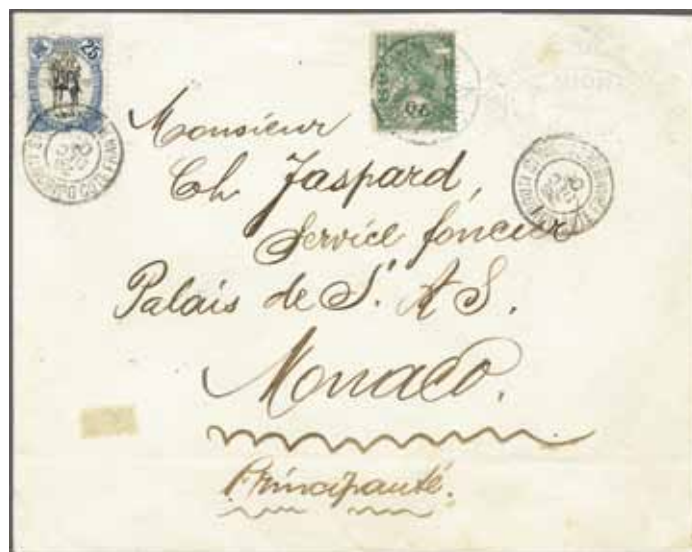 25
Monsieur
Ch. Jaspard,
Service foncier
Palais de S. A. S.
Monaco.
Principauté.